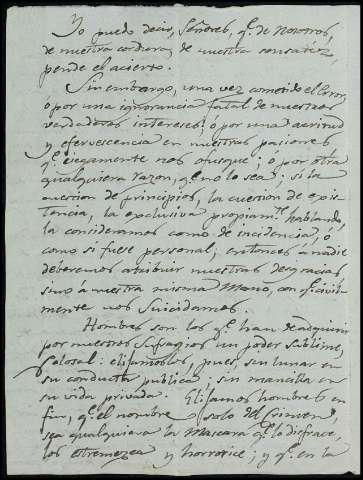 Yo puedo decir, Señores, q.e de nosotros,
de nuestra cordura, de nuestra sensatez,
pende el acierto.
Sin embargo, una vez cometido el Error,
ó por una ignorancia fatal de nuestros
verdaderos intereses; ó por una acritud
y efervescencia en nuestras pasiones
q.e ciegamente nos ofusque; ó por otra
qualquiera razon, q.e no lo sea; si la
cuestion de principios, la cuestion de exis-
tencia, la exclusiva propiam.te hablando,
la consideramos como de incidencia, ó
como si fuese personal; entonces á nadie
deberemos atribuir nuestras desgracias,
sino á nuestra misma mano, con q.e civil-
mente nos suicidamos.
Hombres son los q.e han de adquirir
por nuestros sufragios un poder sublime,
Colosal: elijamoslos, pues, sin lunar en
su conducta publica, sin mancilla en
su vida privada. Elijamos hombres en
fin, q.e el nombre solo del crimen,
sea qualquiera la mascara q.e lo disfrace,
los estremezca y horrorice; y q.e en la